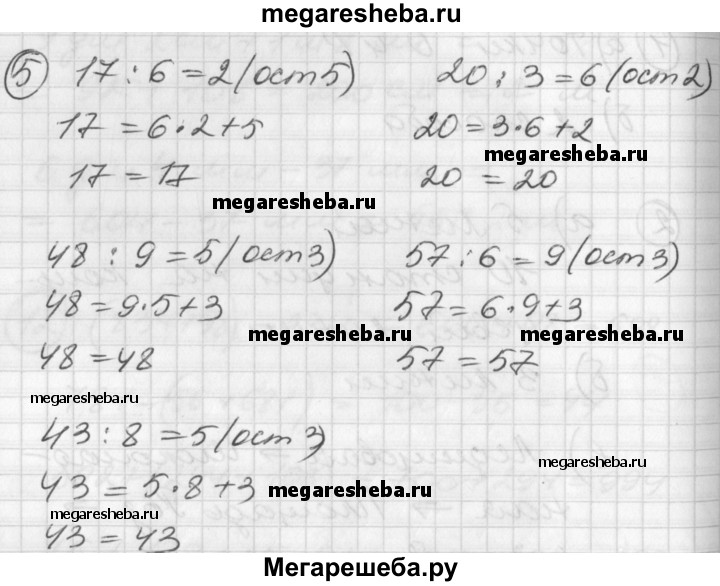 megaresheba.ru
5 17 : 6 = 2 (ост 5)
17 = 6 · 2 + 5
17 = 17
megaresheba.ru
20 : 3 = 6 (ост 2)
20 = 3 · 6 + 2
megaresheba.ru
20 = 20
48 : 9 = 5 (ост 3)
48 = 9 · 5 + 3
megaresheba.ru
48 = 48
megaresheba.ru
57 : 6 = 9 (ост 3)
57 = 6 · 9 + 3
megaresheba.ru
57 = 57
43 : 8 = 5 (ост 3)
43 = 5 · 8 + 3
megaresheba.ru
megaresheba.ru
43 = 43
megaresheba.ru
Мегарешеба.ру